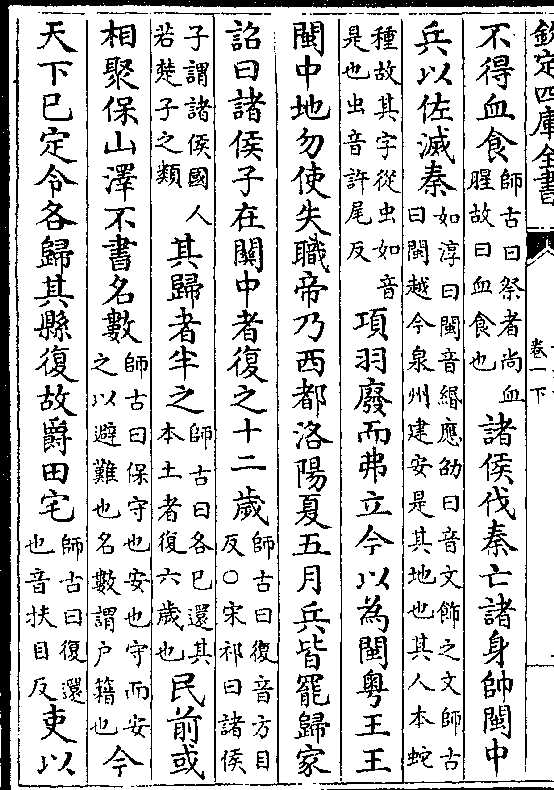 欽定四庫全書
卷一下
不得血食師古曰祭者尚血腥故曰血食也諸侯伐秦亡諸身帥閩中
兵以佐滅秦如淳曰閩音緡應劭曰音文飾之文師古曰閩越今泉州建安是其地也其人本蛇
種故其字從虫如音是也虫音許尾反項羽廢而弗立今以為閩粤王王
閩中地勿使失職帝乃西都洛陽夏五月兵皆罷歸家
詔曰諸侯子在關中者復之十二歲師古曰復音方目反○宋祁曰諸侯
子謂諸侯國人若楚子之類其歸者半之師古曰各已還其本土者復六歲也民前或
相聚保山澤不書名數師古曰保守也安也守而安之以避難也名數謂户籍也今
天下已定令各歸其縣復故爵田宅師古曰復還也音扶目反吏以